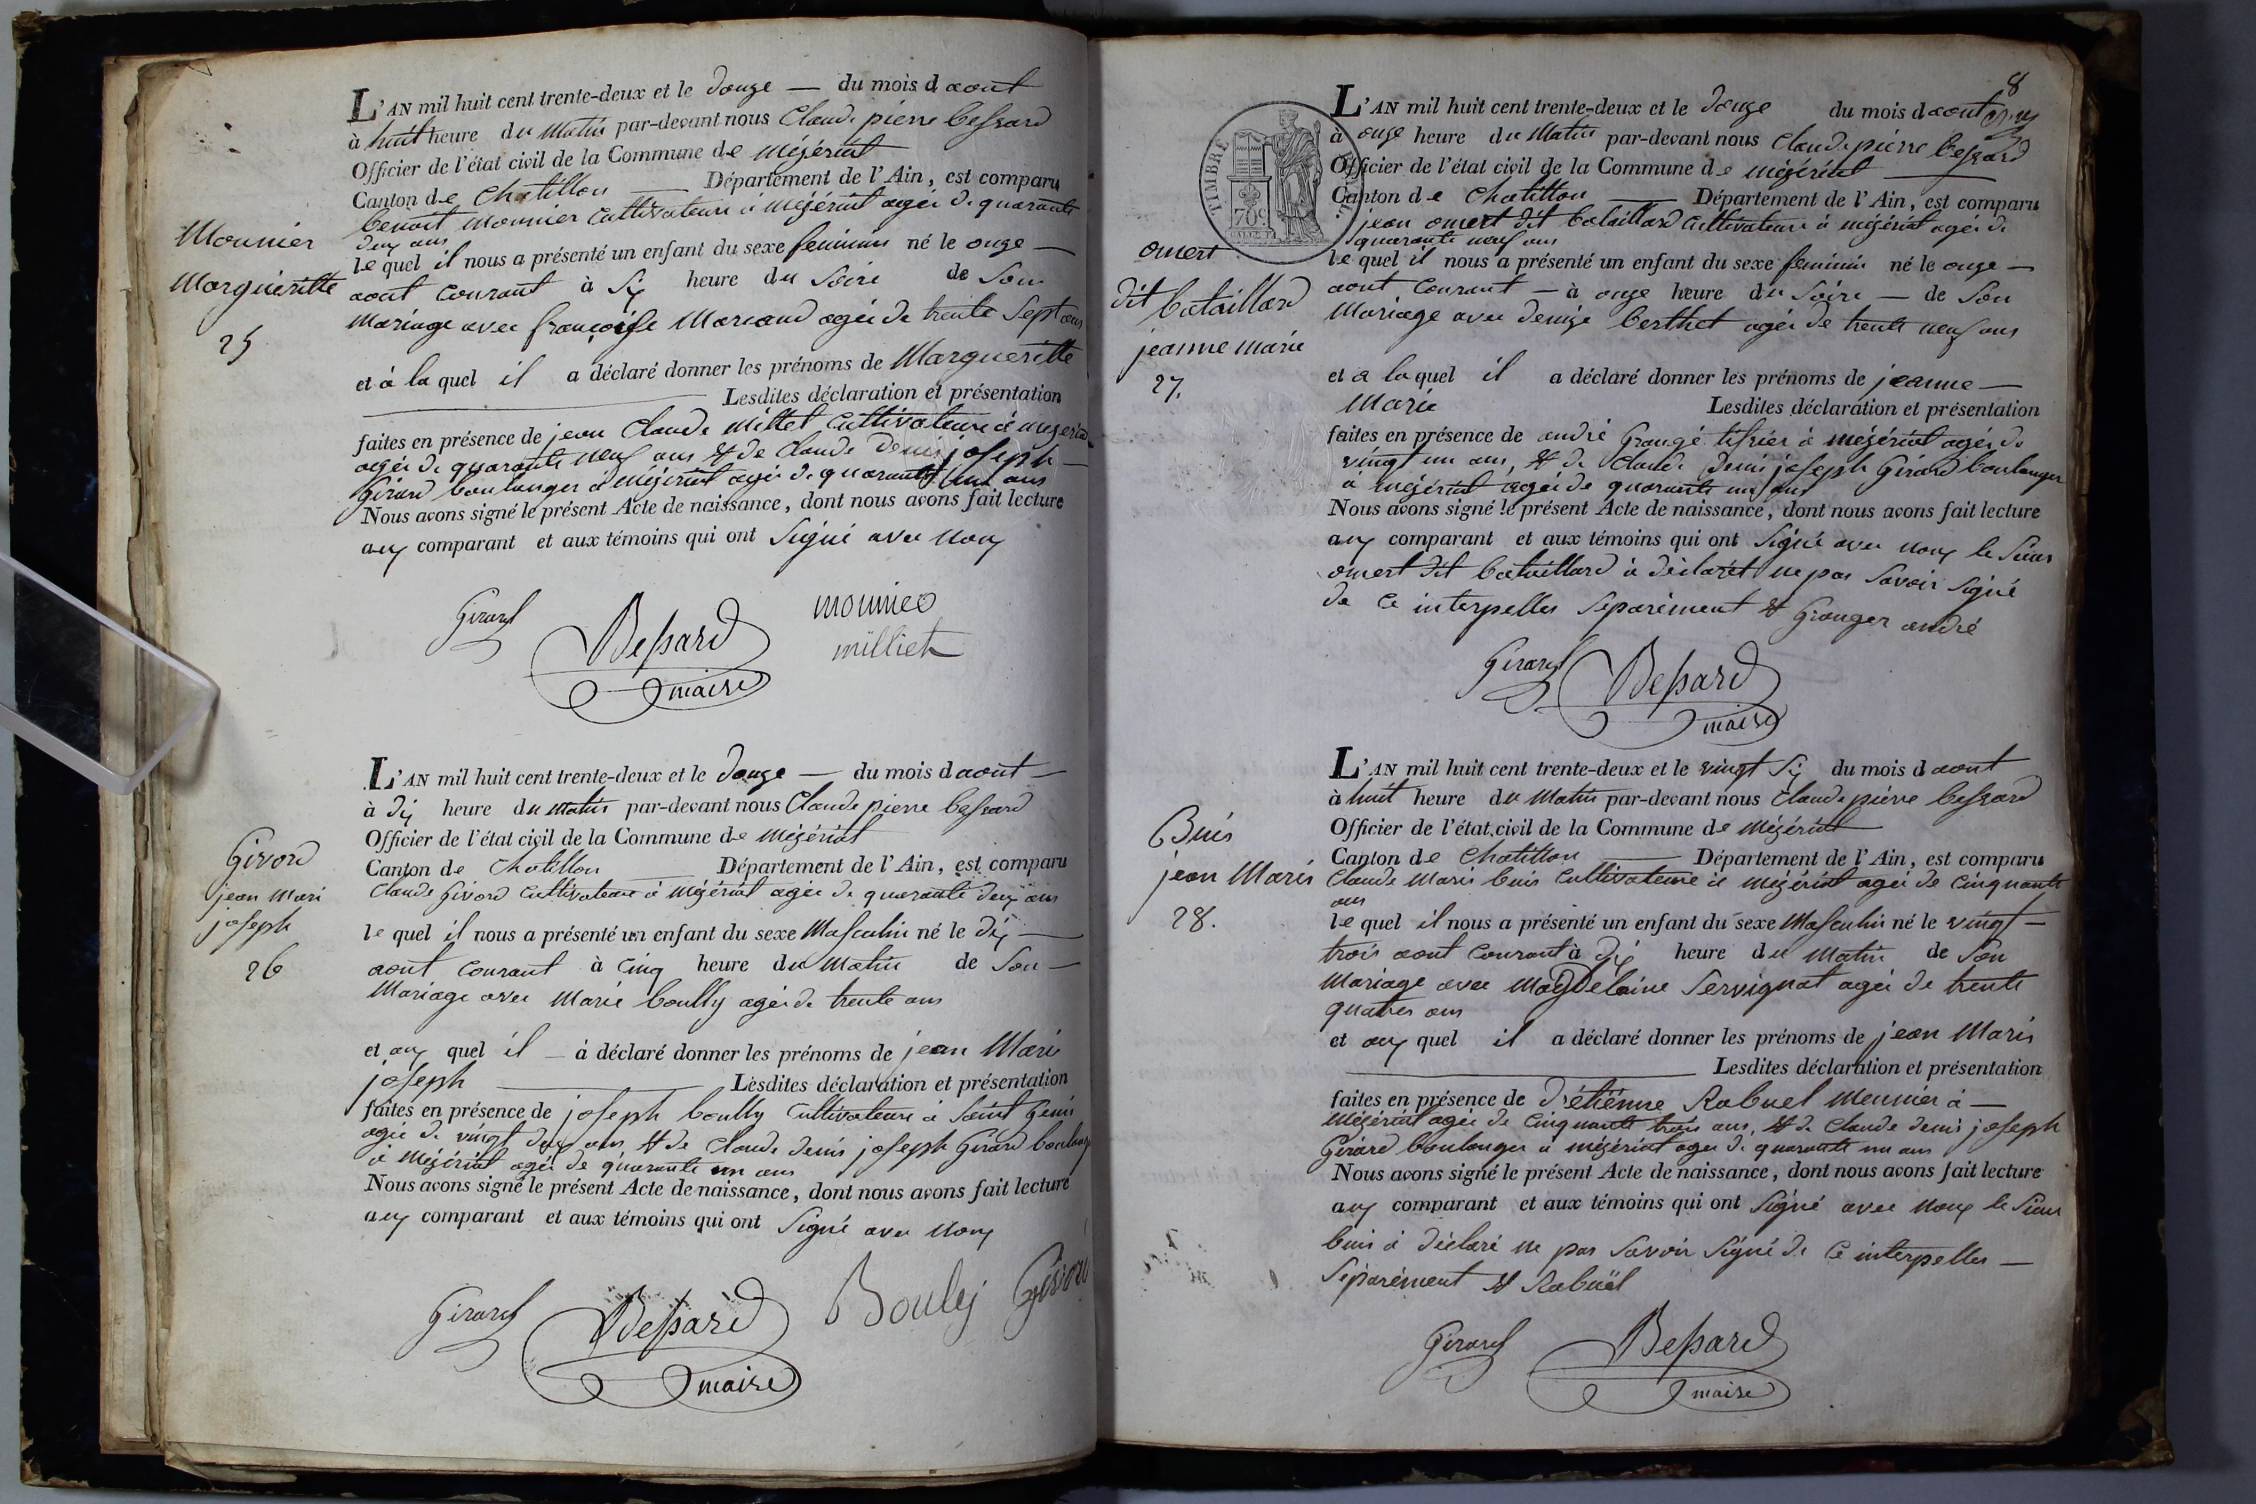 L'AN mil huit cent trente-deux et le douze — du mois d aout
à huit heure du matin par-devant nous Claude pierre bessard
Officier de l'état civil de la Commune de mézériat
Canton de Chatillon — Département de l'Ain, est comparu
benoit mounier cultivateur à mézériat agée de quarante
deux ans
Mounier
le quel il nous a présenté un enfant du sexe feminin né le onze —
Margueritte
aout courant à six heure du soire de son
25
mariage avec françoise Marcand agée de trente sept ans
et à la quel il a déclaré donner les prénoms de Margueritte
— Lesdites déclaration et présentation
faites en présence de jean Claude millet cultivateur à mezeriat
agée de quarante neuf ans & de Claude denis joseph —
Girard boulanger à mézériat agée de quarante un ans
Nous avons signé le présent Acte de naissance, dont nous avons fait lecture
aux comparant et aux témoins qui ont signé avec nous
Girard
Bessard
maire
mounier
milliet
L'AN mil huit cent trente-deux et le douze — du mois d aout —
à dix heure du matin par-devant nous Claude pierre bessard
Officier de l'état civil de la Commune de mézériat
Canton de Chatillon — Département de l'Ain, est comparu
Givord
jean Mari
joseph
26
Claude Givord cultivateur à mézériat agée de quarante deux ans
le quel il nous a présenté un enfant du sexe Masculin né le dix —
aout courant à cinq heure du matin de son —
Mariage avec Marie boully agée de trente ans
et aux quel il — à déclaré donner les prénoms de jean Marie
joseph — Lesdites déclaration et présentation
faites en présence de joseph boully cultivateur à Saint Genis
agée de vingt deux ans & de Claude denis joseph Girard boulanger
à mézériat agée de quarante un ans
Nous avons signé le présent Acte de naissance, dont nous avons fait lecture
aux comparant et aux témoins qui ont signé avec nous
Girard
Bessard
maire
Bouley
Givord
8
L'AN mil huit cent trente-deux et le douze du mois d aout
à onze heure du matin par-devant nous Claude pierre bessard
Officier de l'état civil de la Commune de mézériat —
Canton de Chatillon — Département de l'Ain, est comparu
TIMBRE ROYAL
70c
jean omert dit bataillard cultivateur à mézériat agée de
quarante neuf ans
omert
dit bataillard
jeanne marie
27.
le quel il nous a présenté un enfant du sexe feminin né le onze —
aout courant — à onze heure du soire — de son
Mariage avec denize berthet agée de trente neuf ans
et a la quel il a déclaré donner les prénoms de jeanne —
Marie Lesdites déclaration et présentation
faites en présence de andré Grangé tissier à mézériat agée de
vingt un ans, & de Claude denis joseph Girard boulanger
à mézériat agée de quarante un ans
Nous avons signé le présent Acte de naissance, dont nous avons fait lecture
aux comparant et aux témoins qui ont signé avec nous le sieur
omert dit bataillard à déclarét ne pas savoir signé
de ce interpelles separément & Granger andré
Girard
Bessard
maire
L'AN mil huit cent trente-deux et le vingt six du mois d aout
à huit heure du matin par-devant nous Claude pierre bessard
Officier de l'état civil de la Commune de mézériat
Canton de Chatillon — Département de l'Ain, est comparu
Buis
jean Marie
28.
Claude Marie buis cultivateur à mézériat agée de cinquante
ans
le quel il nous a présenté un enfant du sexe Masculin né le vingt —
trois aout courant à dix heure du matin de son
mariage avec magdelaine Servignat agée de trente
quatres ans
et aux quel il a déclaré donner les prénoms de jean Marie
— Lesdites déclaration et présentation
faites en présence de d'étiénne Rabuel meunier à —
mézériat agée de cinquante trois ans, & de Claude denis joseph
Girard boulanger à mézériat agée de quarante un ans
Nous avons signé le présent Acte de naissance, dont nous avons fait lecture
aux comparant et aux témoins qui ont signé avec nous le sieur
buis à déclaré ne pas savoir signé de ce interpelles —
séparément & Rabuël
Girard
Bessard
maire